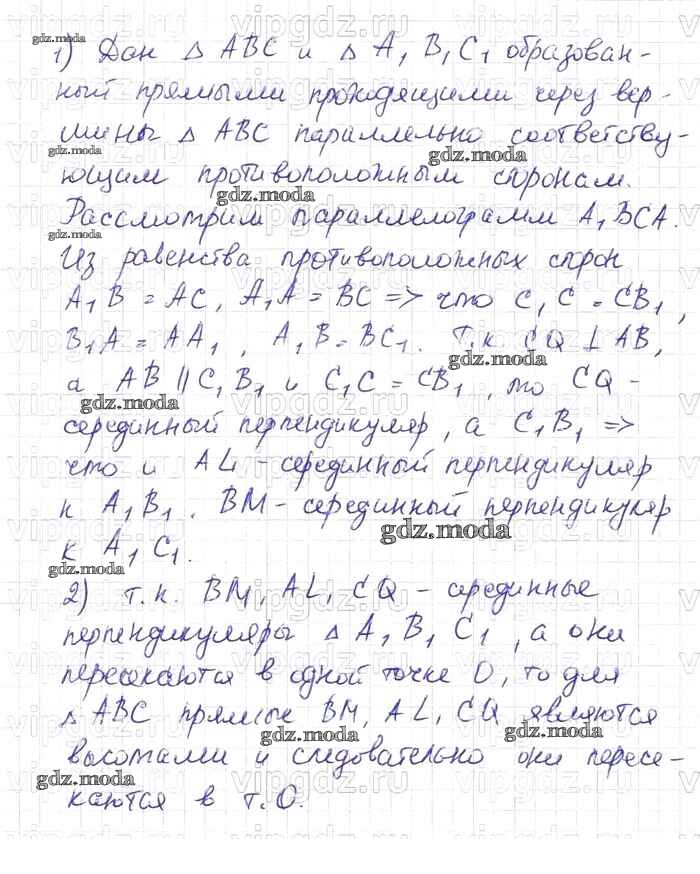 1) Дан △ ABC и △ A₁B₁C₁ образован-
ный прямыми проходящими через вер-
шины △ ABC параллельно соответству-
ющим противоположным сторонам.
Рассмотрим параллелограмм A₁BCA.
Из равенства противоположных сторон
A₁B = AC, A₁A = BC => что C₁C = CB₁,
B₁A = AA₁, A₁B = BC₁. Т.к. CQ ⊥ AB,
а AB || C₁B₁ и C₁C = CB₁, то CQ -
серединный перпендикуляр, а C₁B₁ =>
что и AL - серединный перпендикуляр
к A₁B₁. BM - серединный перпендикуляр
к A₁C₁.
2) т.к. BM, AL, CQ - серединные
перпендикуляры △ A₁B₁C₁, а они
пересекаются в одной точке O, то для
△ ABC прямые BM, AL, CQ являются
высотами и следовательно они пересе-
каются в т.О.
gdz.moda
gdz.moda
gdz.moda
gdz.moda
gdz.moda
gdz.moda
gdz.moda
gdz.moda
gdz.moda
gdz.moda
gdz.moda
gdz.moda
vipgdz.ru